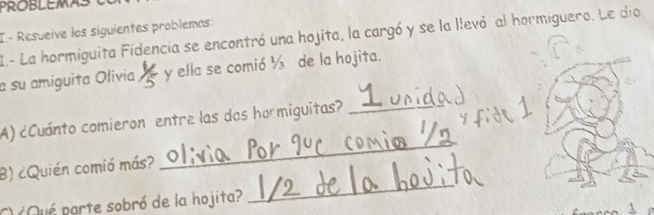 PROBLEMAS
I.- Resuelve los siguientes problemas:
1.- La hormiguita Fidencia se encontró una hojita, la cargó y se la llevó al hormiguero. Le dio
a su amiguita Olivia y ella se comió ⅓ de la hojita.
A) ¿Cuánto comieron entre las dos hormiguitas? 1 unidad
B) ¿Quién comió más? olivia Por que comio 1/2 y fide 1
C) ¿Qué parte sobró de la hojita? 1/2 de la hojita